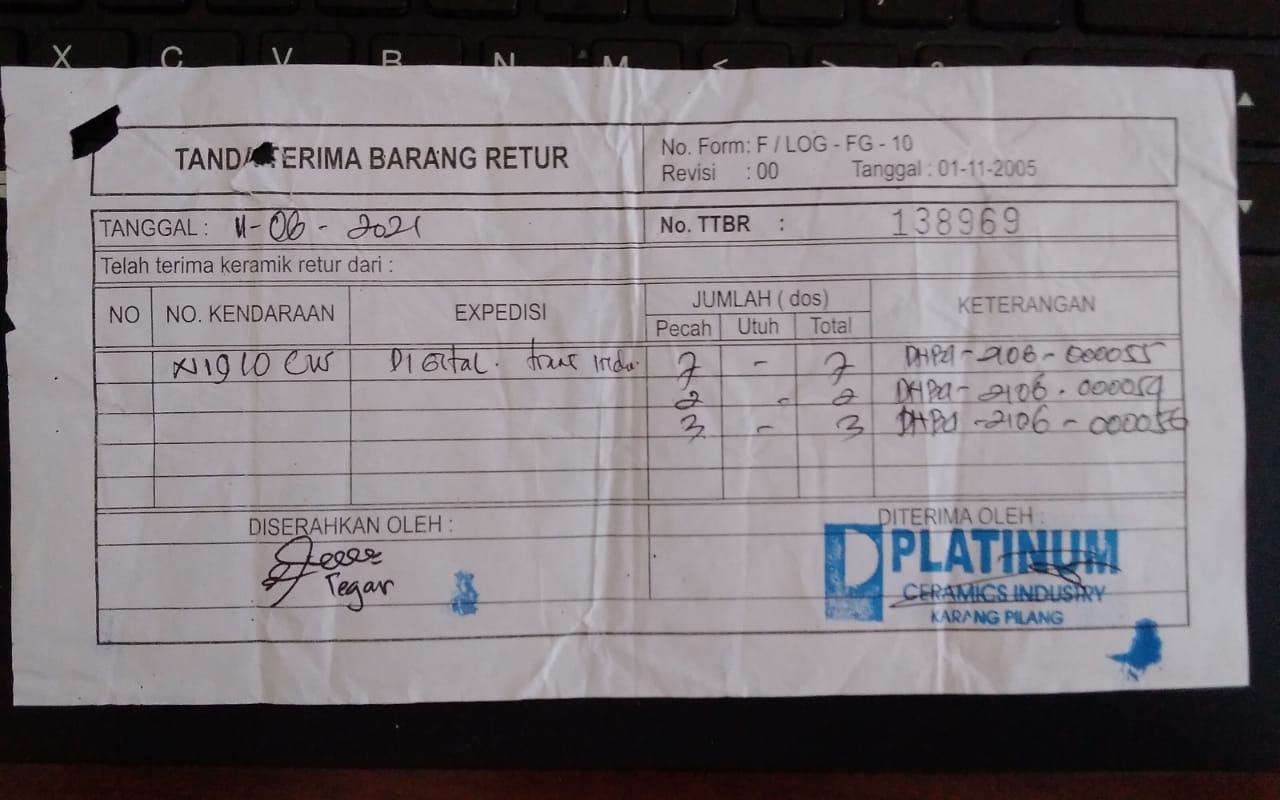 X C V B N M < >
TANDA TERIMA BARANG RETUR
No. Form: F / LOG - FG - 10
Revisi : 00 Tanggal : 01-11-2005
TANGGAL : 11-06-2021
No. TTBR : 138969
Telah terima keramik retur dari :
NO NO. KENDARAAN EXPEDISI JUMLAH ( dos) KETERANGAN
Pecah Utuh Total
DIGItal. trans Indo. 7 - 7 DHPd-2106-000055
2 - 2 DHPd-2106-000059
3 - 3 DHPd-2106-000056
DISERAHKAN OLEH :
DITERIMA OLEH :
Tegar
PLATINUM
CERAMICS INDUSTRY
KARANG PILANG